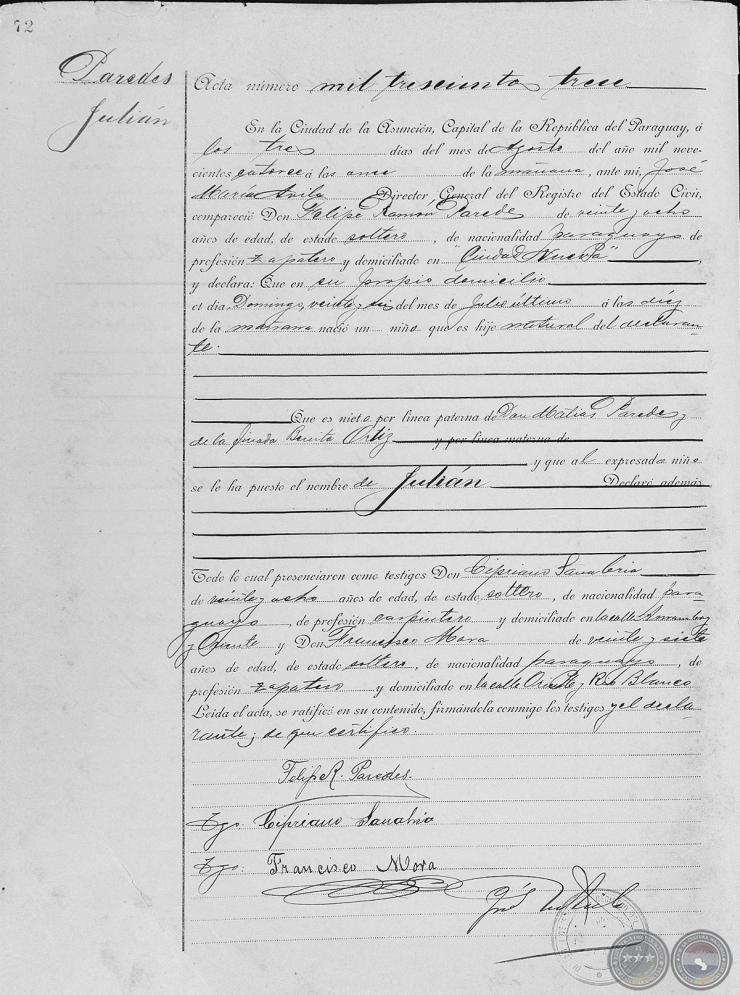 72
Paredes
Julián
Acta número mil trescientos trece
En la Ciudad de la Asunción, Capital de la República del Paraguay, á
los tres días del mes de Agosto del año mil nove-
cientos catorce á las once de la mañana, ante mi, José
María Avila Director General del Registro del Estado Civil,
compareció Don Felipe Ramon Parede de veinte y ocho
años de edad, de estado soltero, de nacionalidad paraguayo de
profesión zapatero y domiciliado en "Ciudad Nueva",
y declara: Que en su propio domicilio
el día Domingo, veinte y seis del mes de Julio último á las diez
de la mañana nació un niño que es hijo natural del declaran-
te.
Que es nieto por línea paterna de Don Matias Parede y
de la finada Benita Ortiz y por línea materna de
y que al expresado niño
se le ha puesto el nombre de Julián Declaró además
Todo lo cual presenciaron como testigos Don Cipriano Sanabria
de veinte y ocho años de edad, de estado soltero, de nacionalidad para
guayo, de profesión carpintero y domiciliado en la calle Amambay
y Oriente y Don Francisco Mora de veinte y siete
años de edad, de estado soltero, de nacionalidad paraguayo, de
profesión zapatero y domiciliado en la calle Oriente y Rio Blanco
Leída el acta, se ratificó en su contenido, firmándola conmigo los testigos y el decla
rante, de que certifico.
Felipe R. Paredes.
Tgo. Cipriano Sanabria
Tgo: Francisco Mora
José M Avila